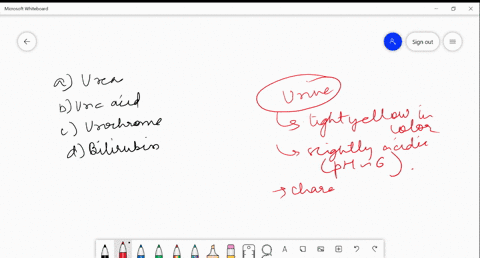 Microsoft Whiteboard
Sign out
a) Urea
b) Uric acid
c) Urochrome
d) Bilirubin
Urine
↳ lightyellow in
color
↳ slightly acidic
(pH ~ 6).
→ chara